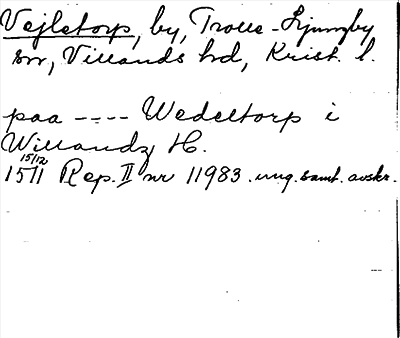 Vejletorp, by, Trolle-Ljungby
sn, Villands hd, Krist. l.
paa ---- Wedeltorp i
Willandz H.
15 15/12 11 Rep. II nr 11983. ung. samt. avskr.